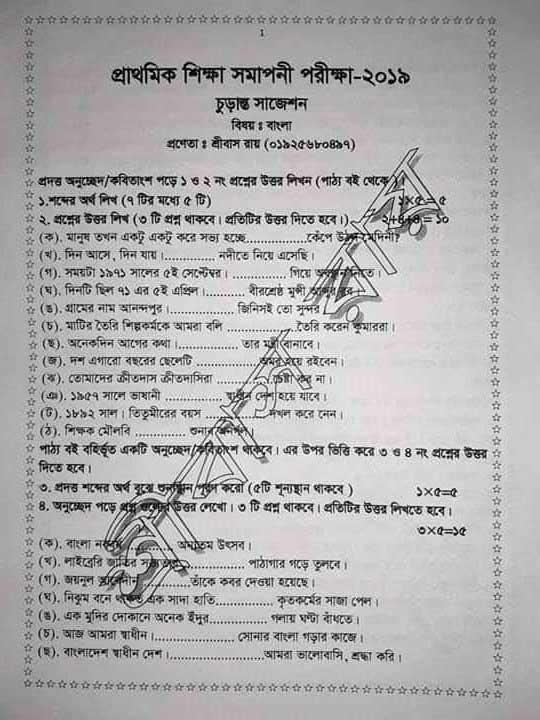 1
প্রাথমিক শিক্ষা সমাপনী পরীক্ষা-২০১৯
চুড়ান্ত সাজেশন
বিষয় ঃ বাংলা
প্রণেতা ঃ শ্রীবাস রায় (০১৯২৫৬৮০৪৯৭)
প্রদত্ত অনুচ্ছেদ/কবিতাংশ পড়ে ১ ও ২ নং প্রশ্নের উত্তর লিখন (পাঠ্য বই থেকে)।
১.শব্দের অর্থ লিখ (৭ টির মধ্যে ৫ টি) ১×৫ = ৫
২. প্রশ্নের উত্তর লিখ (৩ টি প্রশ্ন থাকবে। প্রতিটির উত্তর দিতে হবে।) ২+৪+৪ = ১০
(ক). মানুষ তখন একটু একটু করে সভ্য হচ্ছে................কেঁপে উঠল মেদিনী?
(খ). দিন আসে, দিন যায়।................ নদীতে নিয়ে এসেছি।
(গ). সময়টা ১৯৭১ সালের ৫ই সেপ্টেম্বর।................ গিয়ে অবস্থান নিতে।
(ঘ). দিনটি ছিল ৭১ এর ৫ই এপ্রিল।........... বীরশ্রেষ্ঠ মুন্সী আব্দুর রব।
(ঙ). গ্রামের নাম আনন্দপুর।................ জিনিসই তো সুন্দর।
(চ). মাটির তৈরি শিল্পকর্মকে আমরা বলি ................তৈরি করেন কুমাররা।
(ছ). অনেকদিন আগের কথা।................ তার মন্ত্রী বানাবে।
(জ). দশ এগারো বছরের ছেলেটি ................অমর হয়ে রইবেন।
(ঝ). তোমাদের ক্রীতদাস ক্রীতদাসিরা ................চেষ্টা কর না।
(ঞ). ১৯৫৭ সালে ভাষানী ................ স্বাধীন দেশ হয়ে যাবে।
(ট). ১৮৯২ সাল। তিতুমীরের বয়স ................দখল করে নেন।
(ঠ). শিক্ষক মৌলবি ............ শুনার
পাঠ্য বই বহির্ভূত একটি অনুচ্ছেদ/কবিতাংশ থাকবে। এর উপর ভিত্তি করে ৩ ও ৪ নং প্রশ্নের উত্তর
দিতে হবে।
৩. প্রদত্ত শব্দের অর্থ বুঝে শুন্যস্থান পূরণ করো (৫টি শূন্যস্থান থাকবে ) ১×৫=৫
৪. অনুচ্ছেদ পড়ে প্রশ্ন গুলোর উত্তর লেখো। ৩ টি প্রশ্ন থাকবে। প্রতিটির উত্তর লিখতে হবে।
৩×৫=১৫
(ক). বাংলা নববর্ষ ............ অন্যতম উৎসব।
(খ). লাইব্রেরি জাতির ................ পাঠাগার গড়ে তুলবে।
(গ). জয়নুল আবেদীন................তাঁকে কবর দেওয়া হয়েছে।
(ঘ). নিঝুম বনে থাকত এক সাদা হাতি................ কৃতকর্মের সাজা পেল।
(ঙ). এক মুদির দোকানে অনেক ইঁদুর................ গলায় ঘণ্টা বাঁধতে।
(চ). আজ আমরা স্বাধীন।..................... সোনার বাংলা গড়ার কাজে।
(ছ). বাংলাদেশ স্বাধীন দেশ।.....................আমরা ভালোবাসি, শ্রদ্ধা করি।
শ্রীবাস রায়